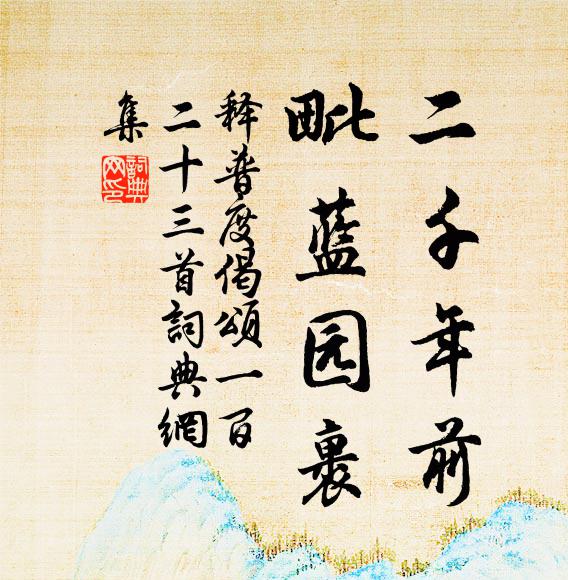 二千年前
毗蓝园裏
释普度偈颂一百
二十三首詞典網
集
詞典
网印